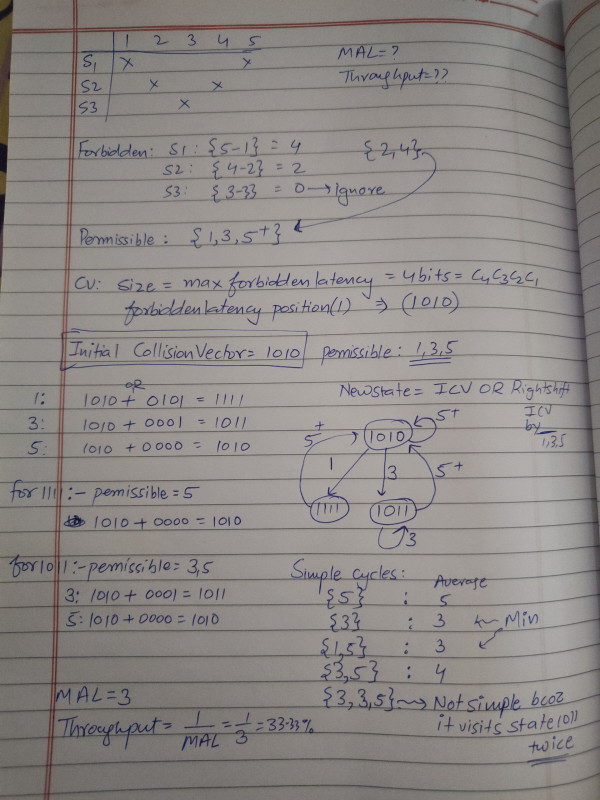 1 2 3 4 5
S1 x x
S2 x x
S3 x
MAL=?
Throughput=??
Forbidden: S1: {5-1} = 4 {2,4}
S2: {4-2} = 2
S3: {3-3} = 0 → Ignore
Permissible: {1,3,5+}
CV: Size = max forbidden latency = 4bits = C4C3C2C1
forbidden latency position(1) ⇒ (1010)
Initial Collision Vector = 1010 permissible: 1,3,5
OR
1: 1010 + 0101 = 1111
3: 1010 + 0001 = 1011
5: 1010 + 0000 = 1010
New state = ICV OR Rightshift
ICV
by
1,3,5
1010 5+
5+ 1 3 5+
1111 1011
3
for 1111:- pemissible=5
1010+0000 = 1010
for 1011:- pemissible= 3,5
3: 1010+0001 = 1011
5: 1010+0000 = 1010
Simple cycles: Average
{5} : 5
{3} : 3 ← Min
{1,5} : 3
{3,5} : 4
{3,3,5} → Not simple bcoz
it visits state 1011
twice
MAL=3
Throughput = 1/MAL = 1/3 = 33.33%